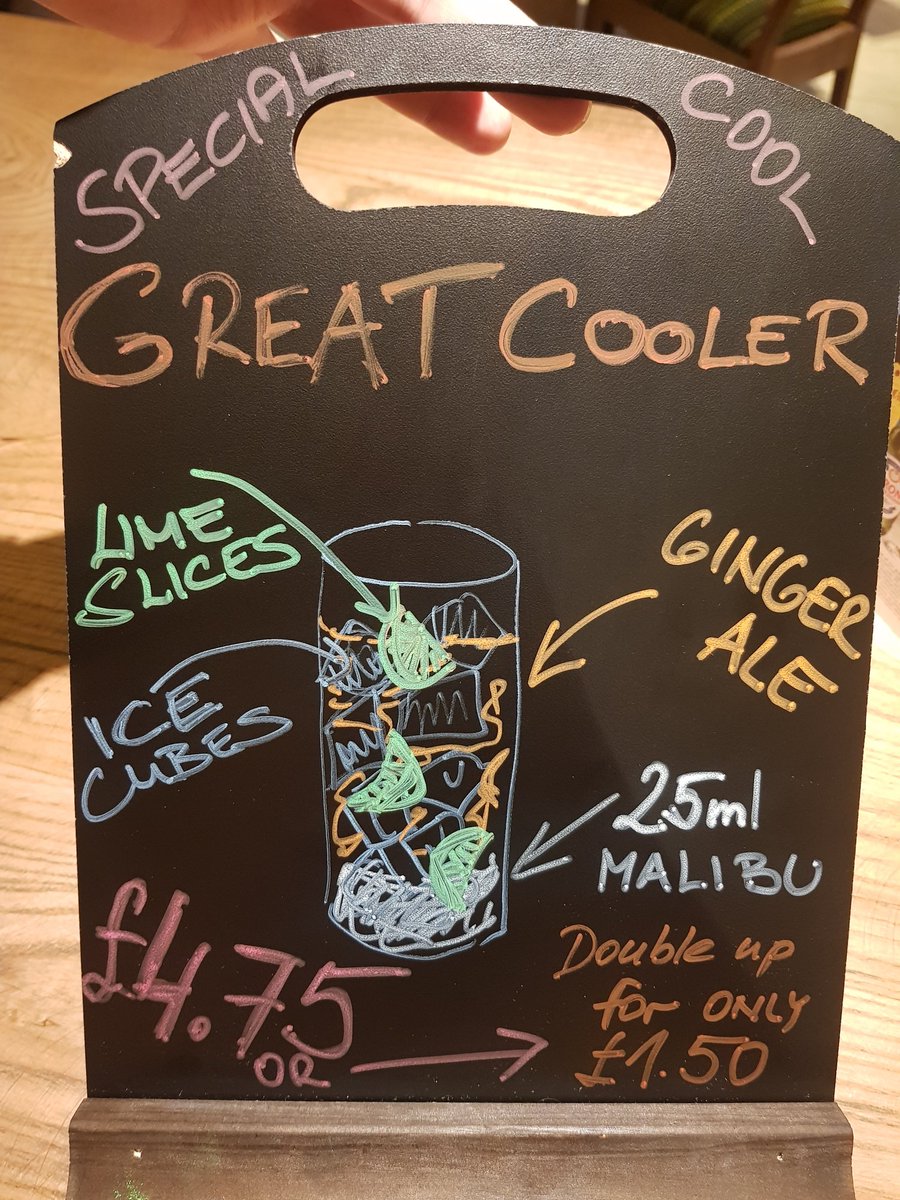 SPECIAL COOL
GREAT COOLER
LIME
SLICES
GINGER
ALE
ICE
CUBES
25ml
MALIBU
£4.75
OR
Double up
for ONLY
£1.50